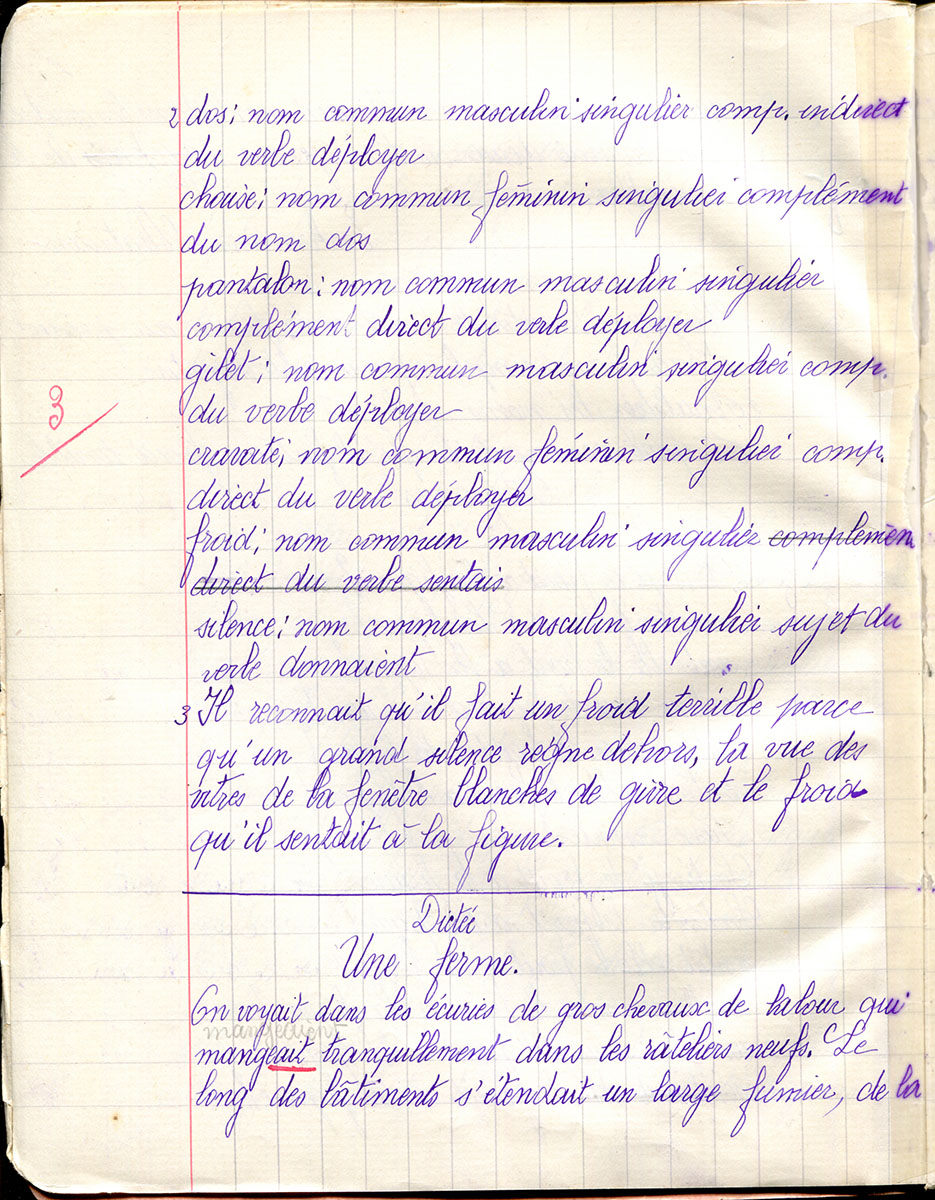 2 dos; nom commun masculin singulier comp. indirect
du verbe déployer
chaise; nom commun féminin singulier complément
du nom dos
pantalon; nom commun masculin singulier
complément direct du verbe déployer
gilet; nom commun masculin singulier comp.
du verbe déployer
3
cravate; nom commun féminin singulier comp.
direct du verbe déployer
froid; nom commun masculin singulier complémen
direct du verbe sentais
silence; nom commun masculin singulier sujet du
verbe donnaient
3 Il reconnait qu'il fait un froid terrible parce
qu'un grand silence règne dehors, la vue des
vitres de la fenêtre blanches de givre et le froid
qu'il sentait à la figure.
Dictée
Une ferme.
On voyait dans les écuries de gros chevaux de labour qui
mangeaient
mangeait tranquillement dans les râteliers neufs. Le
long des bâtiments s'étendait un large fumier, de la